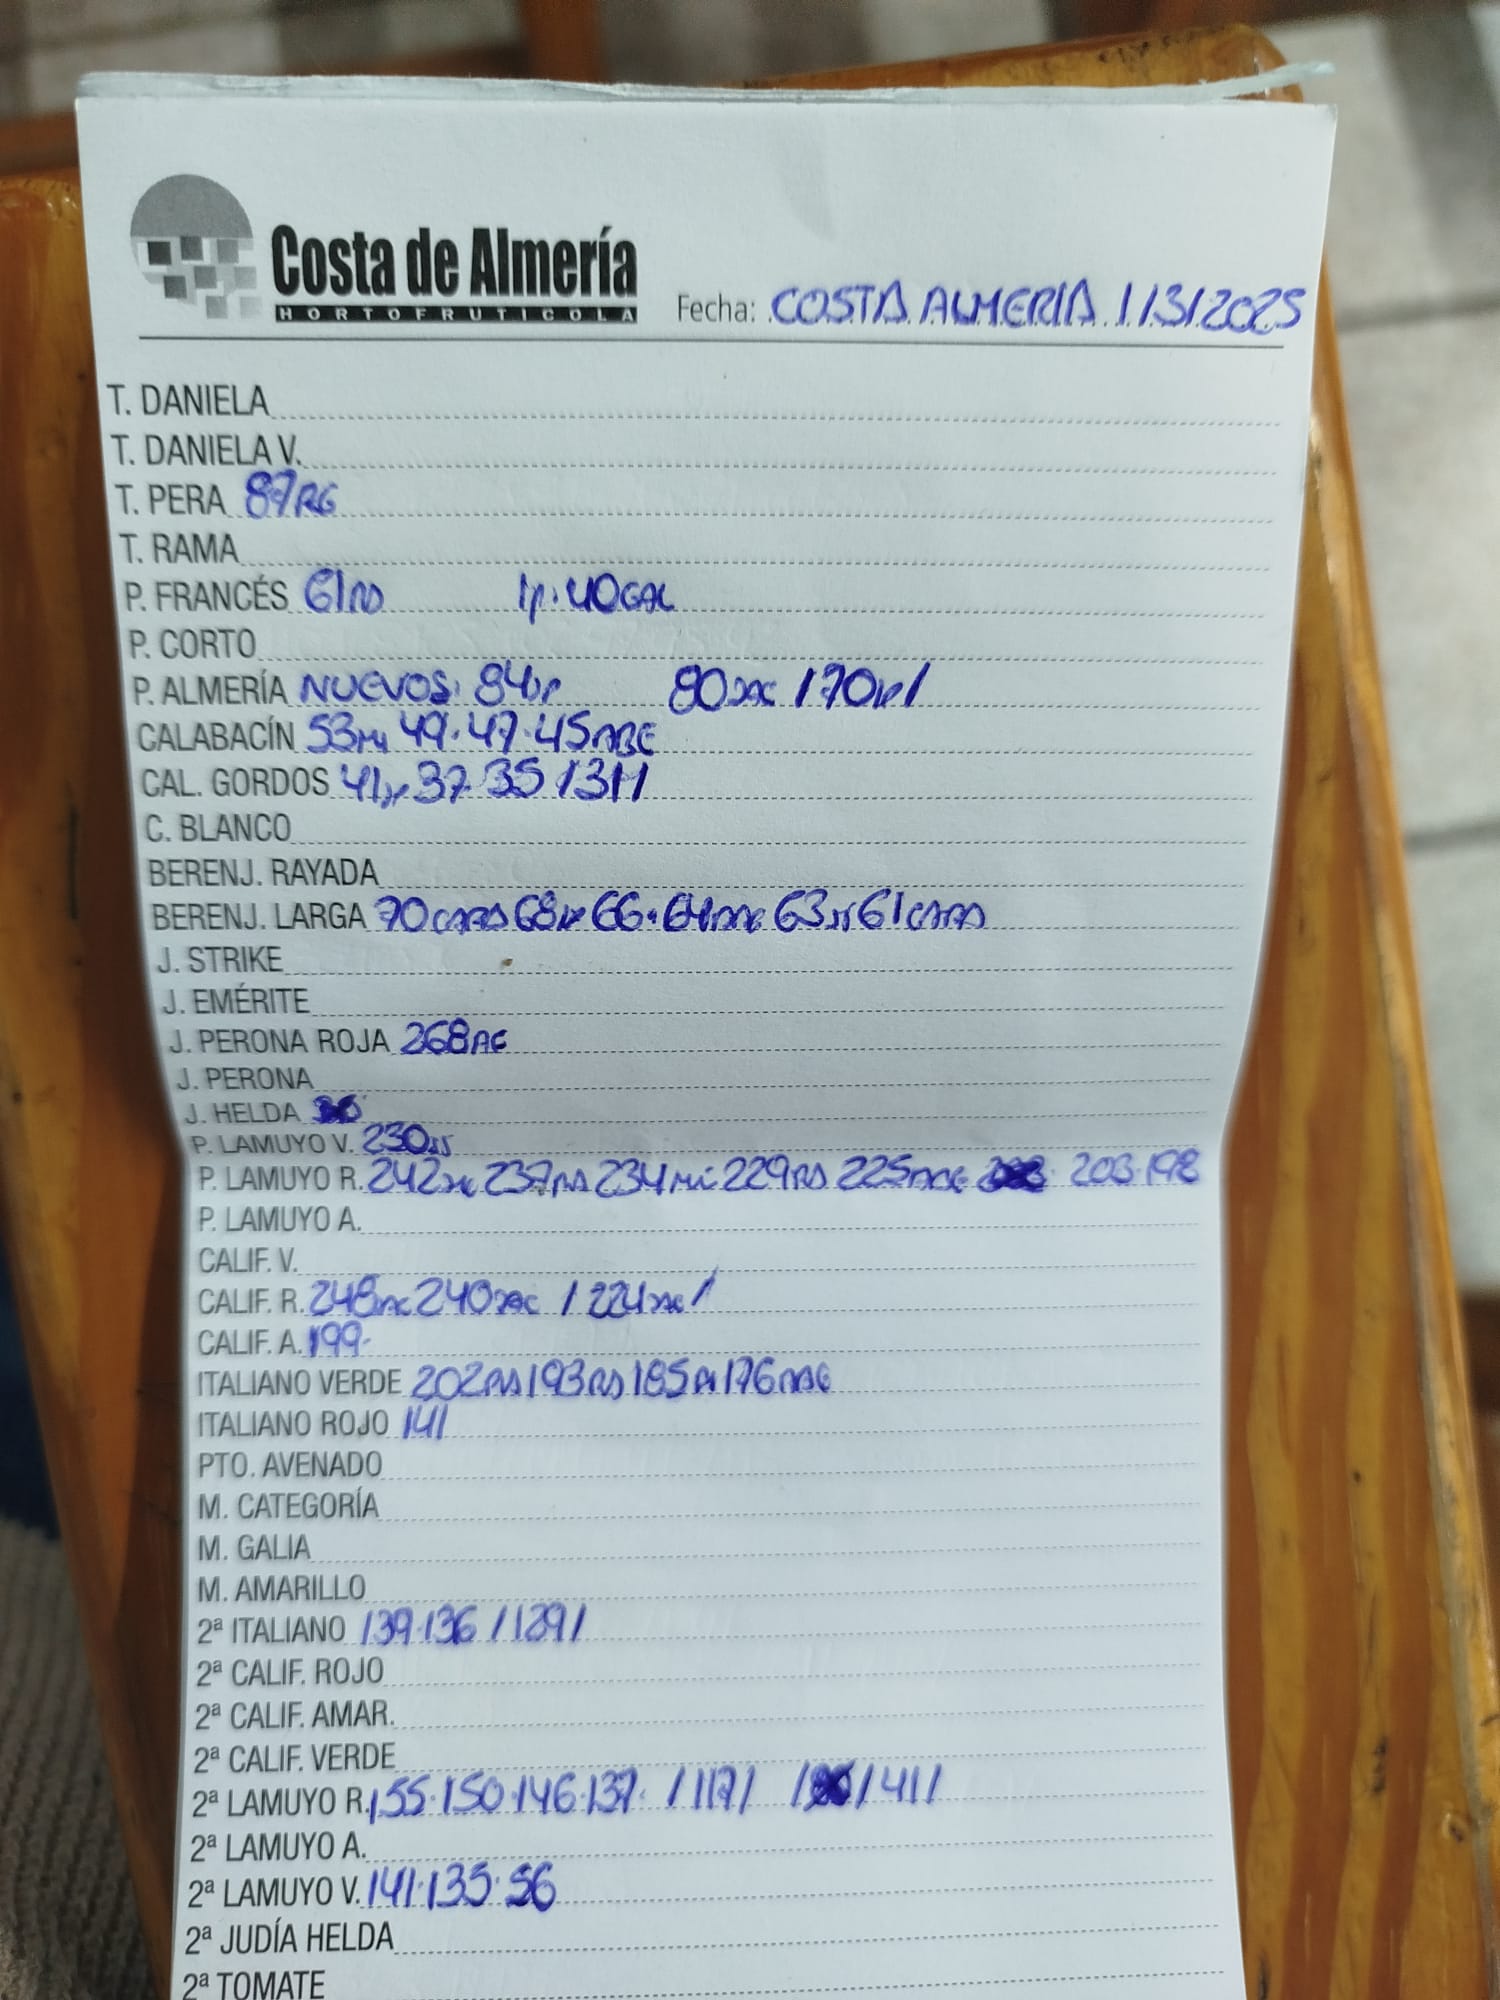 Costa de Almería
HORTOFRUTICOLA
Fecha: COSTA ALMERIA 1/3/2025
T. DANIELA
T. DANIELA V.
T. PERA 87RG
T. RAMA
P. FRANCÉS 61RS 40GAL
P. CORTO
P. ALMERÍA NUEVOS. 84 80 /70/
CALABACÍN 53 49.47.45ABE
CAL. GORDOS 41 37 35 /31/
C. BLANCO
BERENJ. RAYADA
BERENJ. LARGA 70 68 66. 64 63 61
J. STRIKE
J. EMÉRITE
J. PERONA ROJA 268AE
J. PERONA
J. HELDA
P. LAMUYO V. 230
P. LAMUYO R. 242 237RS 234Mi 229RS 225 203.198
P. LAMUYO A.
CALIF. V.
CALIF. R. 248 240 /224 /
CALIF. A. 199.
ITALIANO VERDE 202RS 193RS 185 176ABE
ITALIANO ROJO 141
PTO. AVENADO
M. CATEGORÍA
M. GALIA
M. AMARILLO
2ª ITALIANO 139.136 /129/
2ª CALIF. ROJO
2ª CALIF. AMAR.
2ª CALIF. VERDE
2ª LAMUYO R. 155.150.146.137. /117/ /41/
2ª LAMUYO A.
2ª LAMUYO V. 141.135.56
2ª JUDÍA HELDA
2ª TOMATE